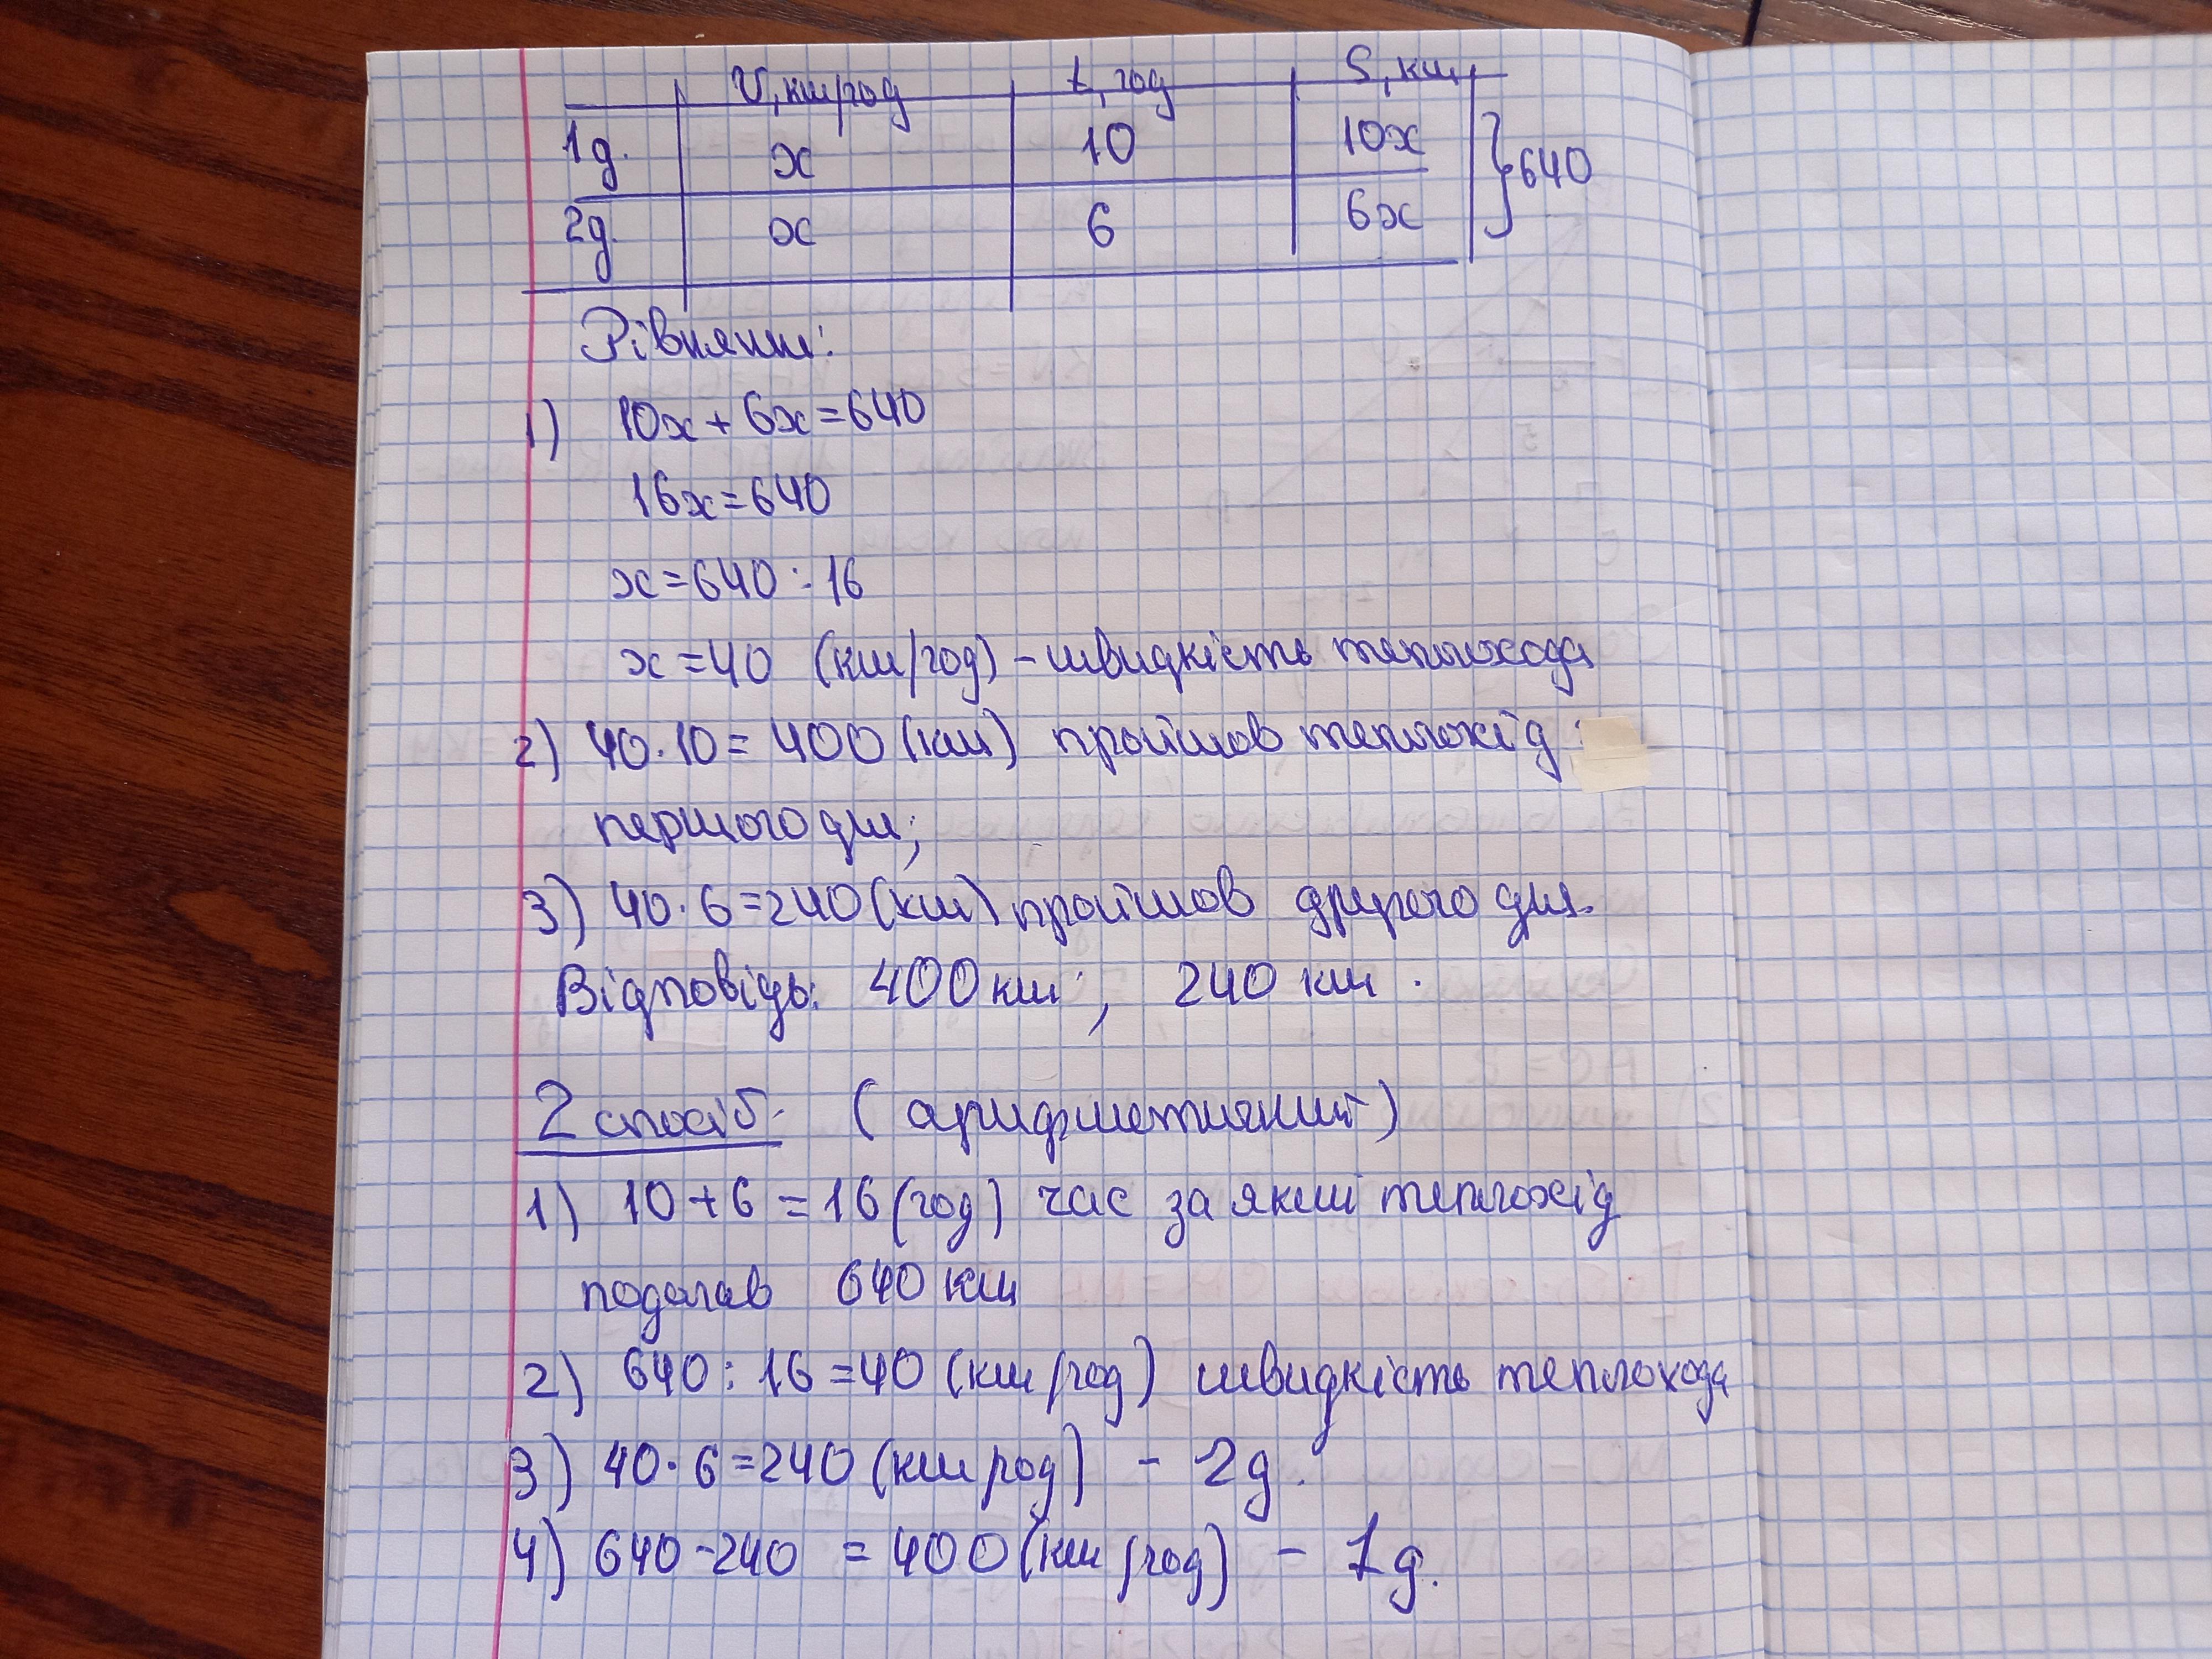 V, км/год t, год S, км
1д. x 10 10x
2д. x 6 6x
}640
Рівняння:
1) 10x+6x=640
16x=640
x=640:16
x=40 (км/год) – швидкість теплохода
2) 40·10=400(км) пройшов теплохід
першого дня;
3) 40·6=240(км) пройшов другого дня.
Відповідь: 400км; 240 км.
2 спосіб. (арифметичний)
1) 10+6=16(год) час за який теплохід
подолав 640 км
2) 640:16=40 (км/год) швидкість теплохода
3) 40·6=240 (км/год) – 2д.
4) 640-240 = 400(км/год) – 1д.